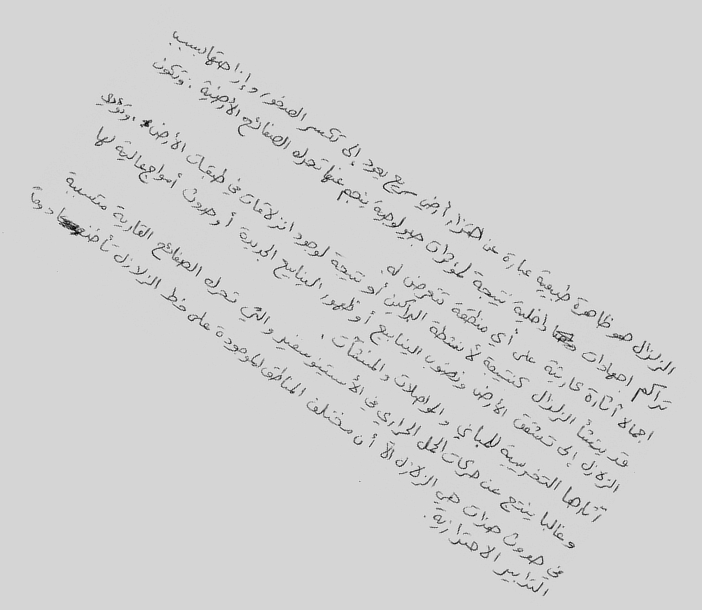 الزلزال هو ظاهرة طبيعية عبارة عن اهتزاز أرضي سريع يعود إلى تكسر الصخور وإزاحتها بسبب
تراكم اجهادات داخلية نتيجة لمؤثرات جيولوجية ينجم عنها تحرك الصفائح الأرضية. وتكون
اجمالا آثاره كارثية على أي منطقة تتعرض له.
قد ينشأ الزلزال كنتيجة لأنشطة البراكين أو نتيجة لوجود انزلاقات في طبقات الأرض. وتؤدي
الزلازل إلى تشقق الأرض ونضوب الينابيع أو ظهور الينابيع الجديدة أو حدوث أمواج عالية لها
آثارها التخريبية للمباني والمواصلات والمنشآت.
وغالبا ينتج عن حركات الحمل الحراري في الأستينوسفير والتي تحرك الصفائح القارية متسببة
في حدوث هزات هي الزلازل الآ أن مختلف المناطق الموجودة على خط الزلازل تأخذ دوماً
التدابير الاحترازية.